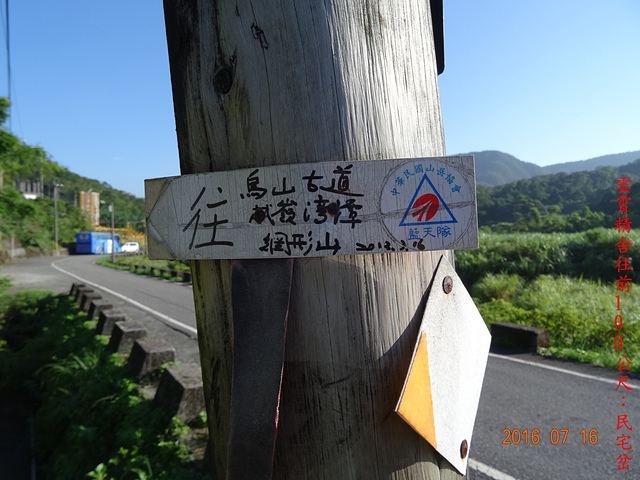 往
烏山古道
崴嵡灣潭
網形山 2013.2.16
中華民國山岳協會
藍天隊
雲霄精舍往前100公尺:民宅岔
2016 07 16